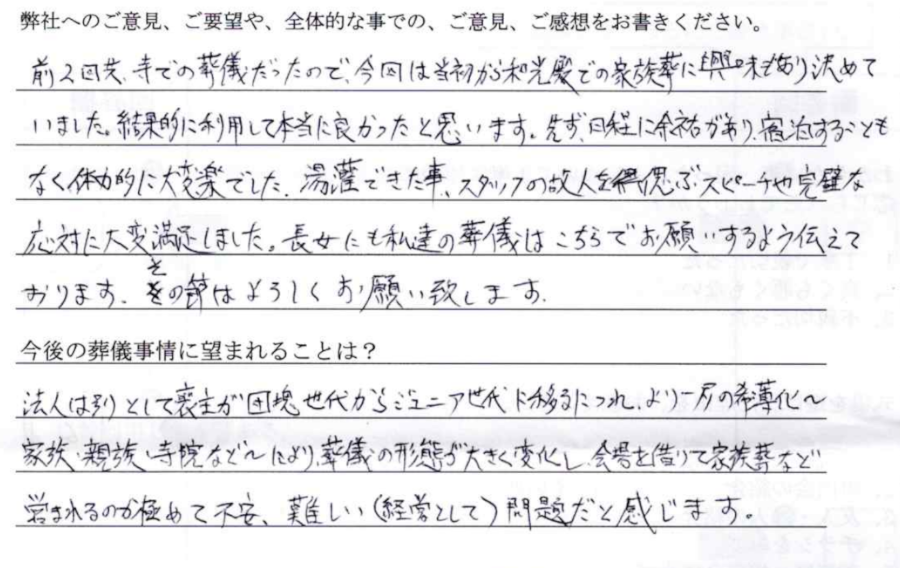 弊社へのご意見、ご要望や、全体的な事での、ご意見、ご感想をお書きください。
前2回共、寺での葬儀だったので、今回は当初から和光殿での家族葬に興味もあり決めて
いました。結果的に利用して本当に良かったと思います。先ず、日程に余裕があり、宿泊することも
なく体力的に大変楽でした。湯灌できた事、スタッフの故人を偲ぶスピーチや完璧な
応対に大変満足しました。長女にも私達の葬儀はこちらでお願いするよう伝えて
おります。その節はよろしくお願い致します。
今後の葬儀事情に望まれることは?
法人は別として喪主が団塊世代からジュニア世代に移るにつれ、より一層の希薄化〜
家族・親族・寺院など〜により、葬儀の形態が大きく変化し、会場を借りて家族葬など
営まれるのが極めて不安、難しい(経営として)問題だと感じます。